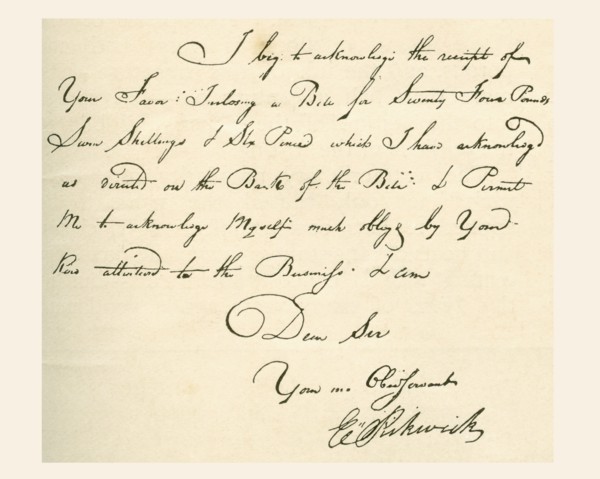 I beg to acknowlege the receipt of
Your Favor Inclosing a Bill for Seventy Four Pounds
Seven Shillings & Six Pence which I have acknowleg'd
as directed on the Back of the Bill & Permit
Me to acknowlege Myself much oblig'd by Your
Kind attention to the Business I am
Dear Sir
Your mo Obed Servant
E Pickwick